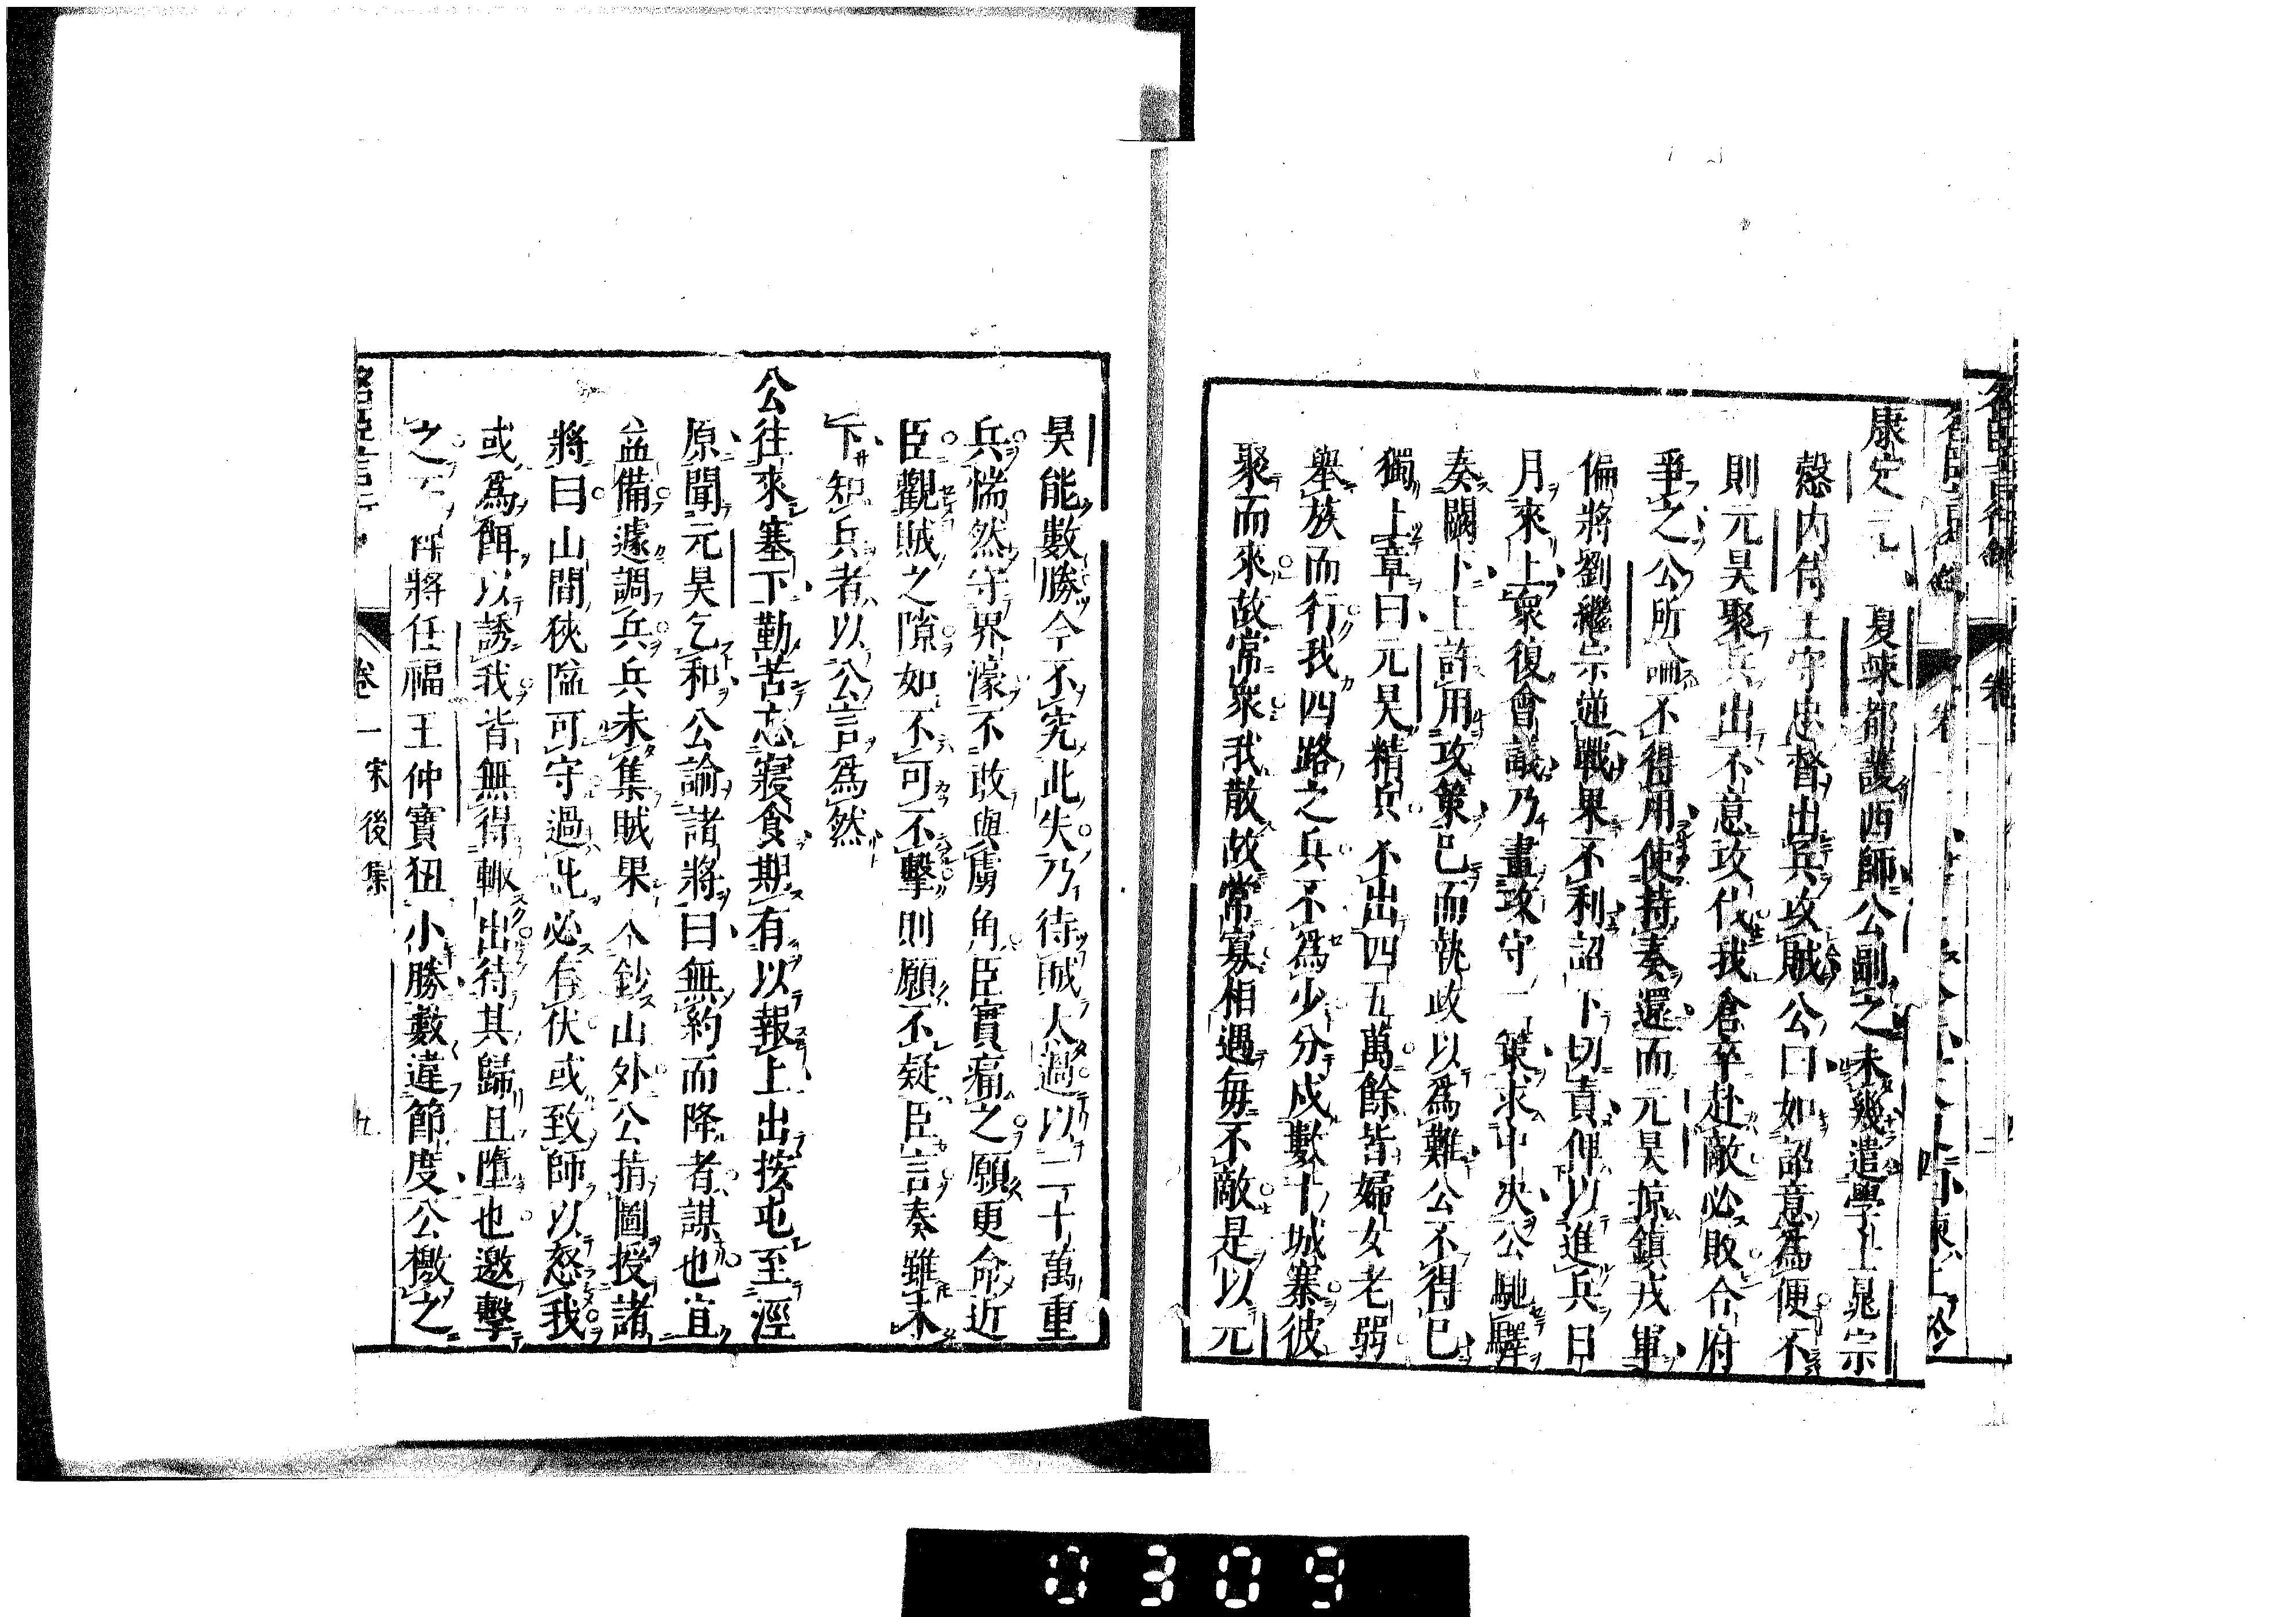 康定元 夏竦都護西師公副之未幾遣學士晁宗
慤内侍王守忠督出兵攻賊公曰如詔意爲便不
則元昊聚兵出不意攻伐我倉卒赴敵必敗合府
爭之公所論不得用使持奏還而元昊掠鎮戎軍
偏將劉繼宗逆戰果不利詔下切責俾以進兵日
月來上衆復會議乃畫攻守二策求中决公馳驛
奏闕下上許用攻策已而執政以爲難公不得已
獨上章曰元昊精兵不出四五萬餘皆婦女老弱
舉族而行我四路之兵不爲少分戍數十城寨彼
聚而來故常衆我散故常寡相遇毎不敵是以元
昊能數勝今不究此失乃待賊太過以二十萬重
兵惴然守界濠不敢與虜角臣實痛之願更命近
臣觀賊之隙如不可不擊則願不疑臣言奏雖未
下知兵者以公言爲然
公往來塞下勤苦忘寢食期有以報上出按屯至涇
原聞元昊乞和公諭諸將曰無約而降者謀也宜
益備遽調兵兵未集賊果入鈔山外公指圖授諸
將曰山間狹隘可守過此必有伏或致師以怒我
或爲餌以誘我皆無得輒出待其歸且墮也邀擊
之 將任福王仲寶狃小勝數違節度公檄之
卷一 宋 後集 九
0309